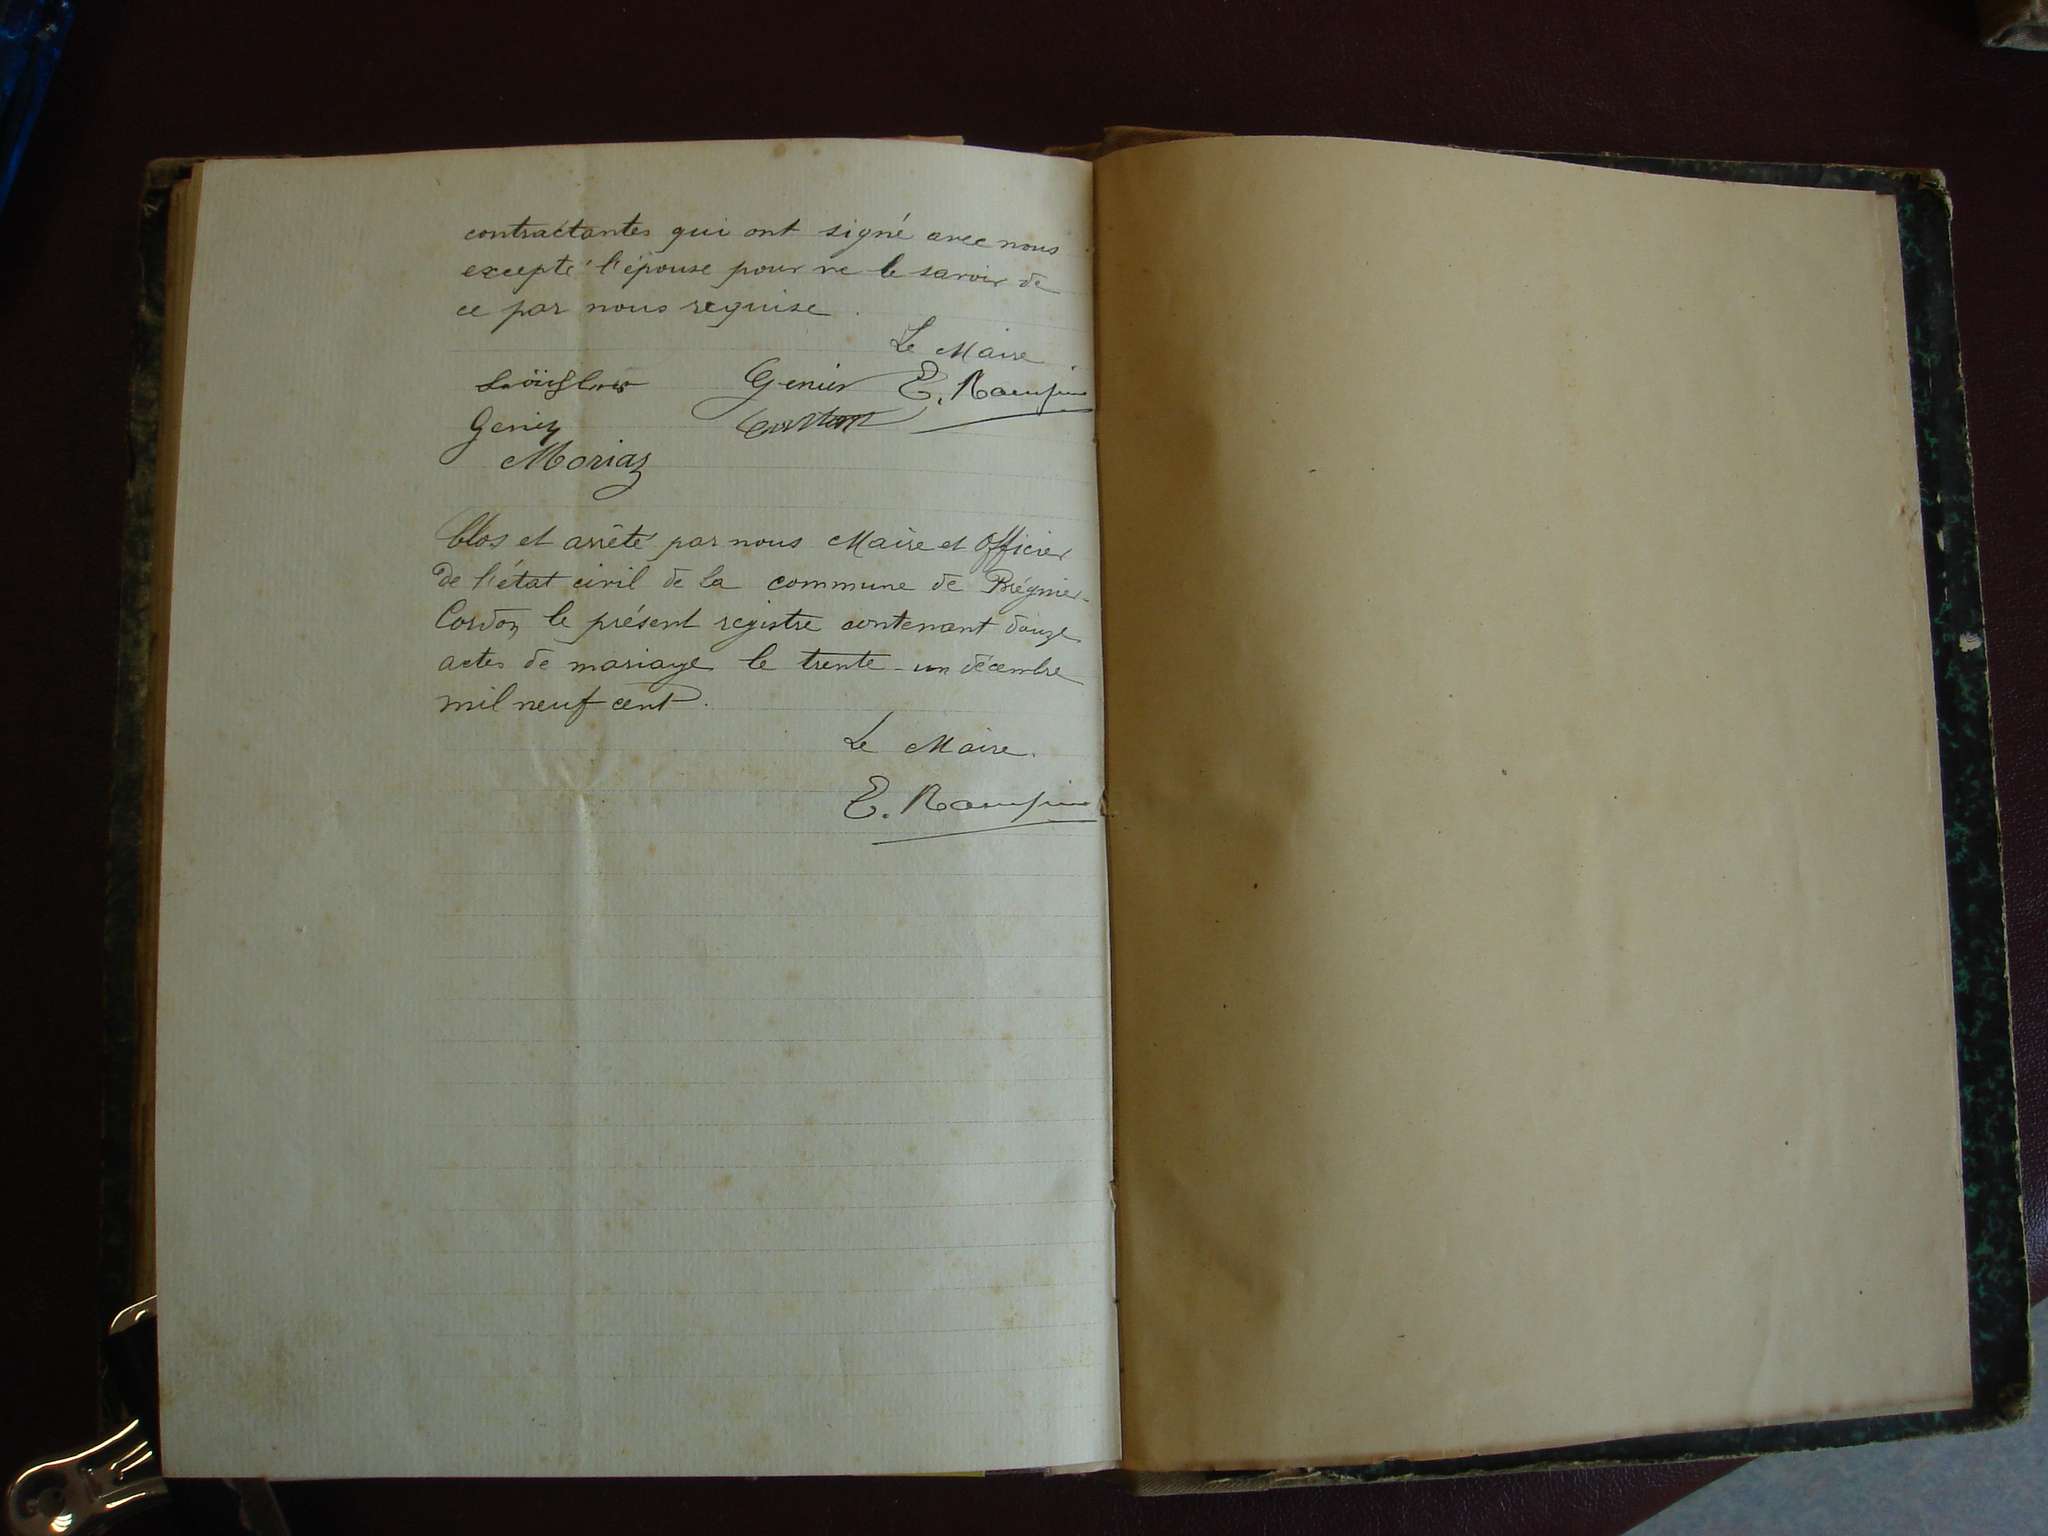 contractantes qui ont signé avec nous
excepté l'épouse pour ne le savoir de
ce par nous requise.
Le Maire
Genier E.
Genin
Moriaz
Clos et arrêté par nous Maire et Officier
de l'état civil de la commune de Brégnier-
Cordon le présent registre contenant douze
actes de mariage le trente-un décembre
mil neuf cent.
Le Maire.
E.